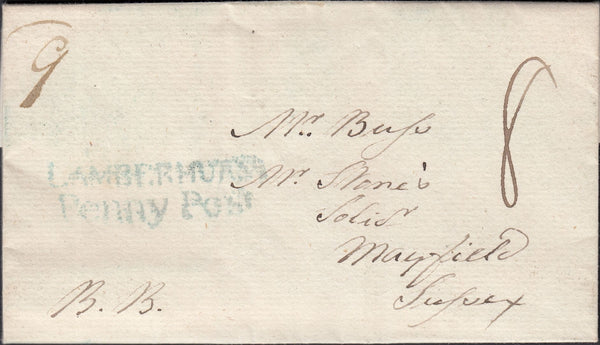 9
8
Mr. Buſs
LAMBERHURST
Penny Post
Mr. Stone's
Solir
Mayfield
Suſsex
B. B.